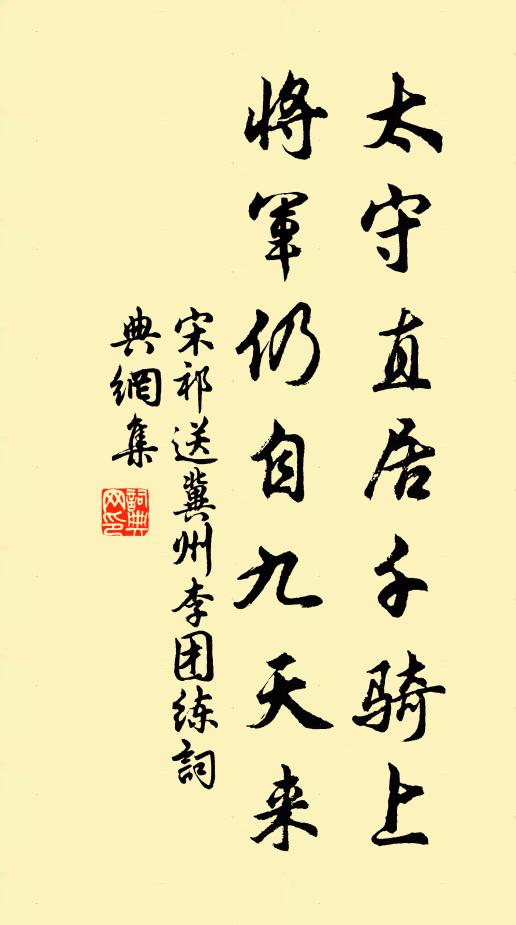 太守直居千骑上
将军仍自九天来
宋祁送冀州李团练詞
典網集
詞典网印